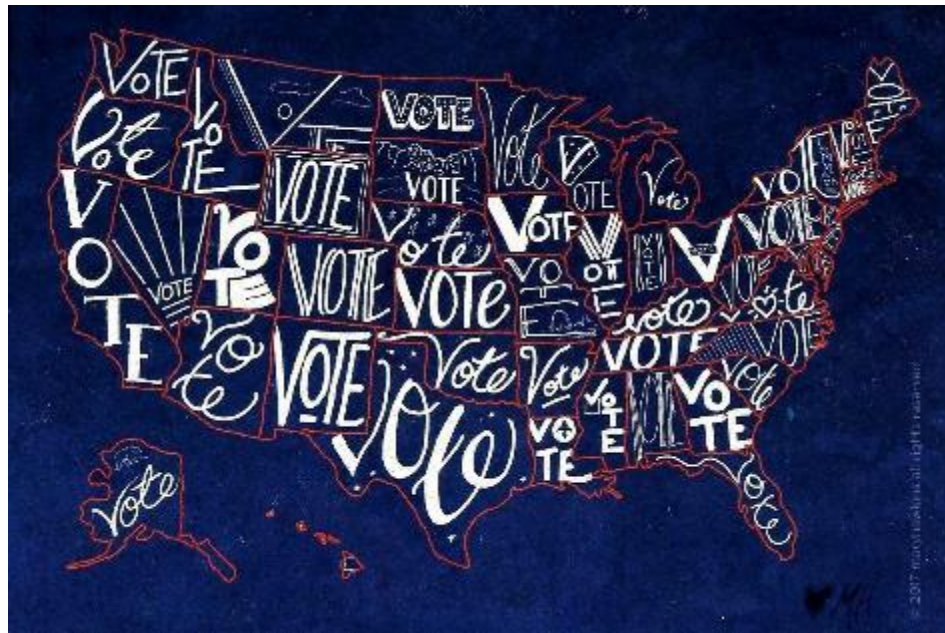 VOTE
VOTE
Vote
VOTE
VOTE
Vote
VOTE
VOTE
Vote
VOTE
VOTE
VOTE
Vote
VOTE
VOTE
VOTE
VOTE
VOTE
VOTE
VOTE
VOTE
Vote
VOTE
VOTE
vote
VOTE
VOTE
Vote
VOTE
Vote
Vote
VOTE
VOTE
VOTE
Vote
Vote
VOTE
Vote
Vote
© 2017
all rights reserved
MH